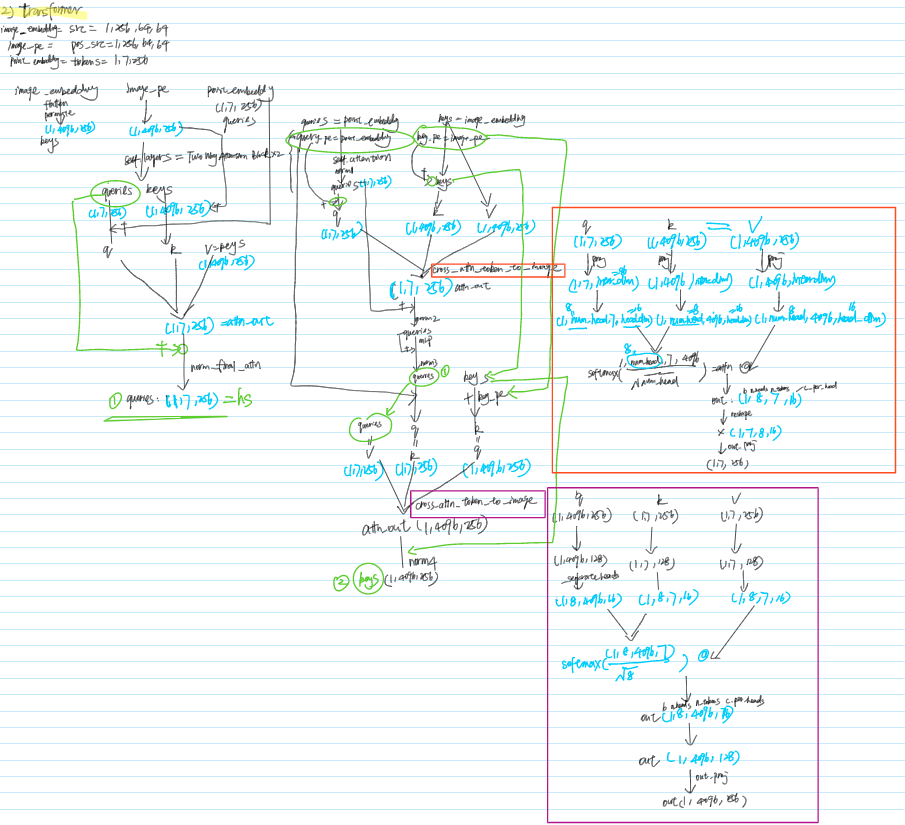 2) transformer
image_embeddng = src = 1,256,64,64
Image_pe = pos_src = 1,256,64,64
point_embeddng = tokens = 1,7,256
image_embeddng
flatten
permute
(1,4096,256)
keys
Image_pe
(1,4096,256)
point_embeddng
(1,7,256)
queries
self.layers = Two Way Attention Block x2
queries
(1,7,256)
keys
(1,4096,256)
+
q
k
V=keys
(1,4096,256)
(1,7,256) = attn_out
+
norm_final_attn
① queries: (1,7,256) = hs
queries = point_embeddng
query_pe = point_embeddng
keys = image_embeddng
key_pe = image_pe
self.attention
norm1
queries (1,7,256)
+
q
(1,7,256)
+
keys
k
(1,4096,256)
V
(1,4096,256)
cross_attn_token_to_image
(1,7,256) attn_out
+
norm2
queries
mlp
+
norm3
queries ①
key
+ key_pe
queries
V
(1,7,256)
q
k
(1,7,256)
k
q
(1,4096,256)
cross_attn_token_to_image
attn_out (1,4096,256)
norm4
② keys (1,4096,256)
q
(1,7,256)
k
(1,4096,256)
V
(1,4096,256)
proj
proj
proj
(1,7,inter.dim)
(1,4096,inter.dim)
(1,4096,inter.dim)
(1,num_head,7,head.dim)
(1,num.head,4096,head.dim)
(1,num.head,4096,head_dim)
8
16
softmax(
1,num.head,7,4096
√num_head
) = attn @
b n.heads n.tokens c.per.head
out: (1,8,7,16)
reshape
x (1,7,8,16)
out.proj
(1,7,256)
q
(1,4096,256)
k
(1,7,256)
V
(1,7,256)
(1,4096,128)
(1,7,128)
(1,7,128)
separate heads
(1,8,4096,16)
(1,8,7,16)
(1,8,7,16)
softmax(
(1,8,4096,7)
√8
) @
b n.heads n.tokens c.per.heads
out (1,8,4096,16)
out (1,4096,128)
out.proj
out(1,4096,256)